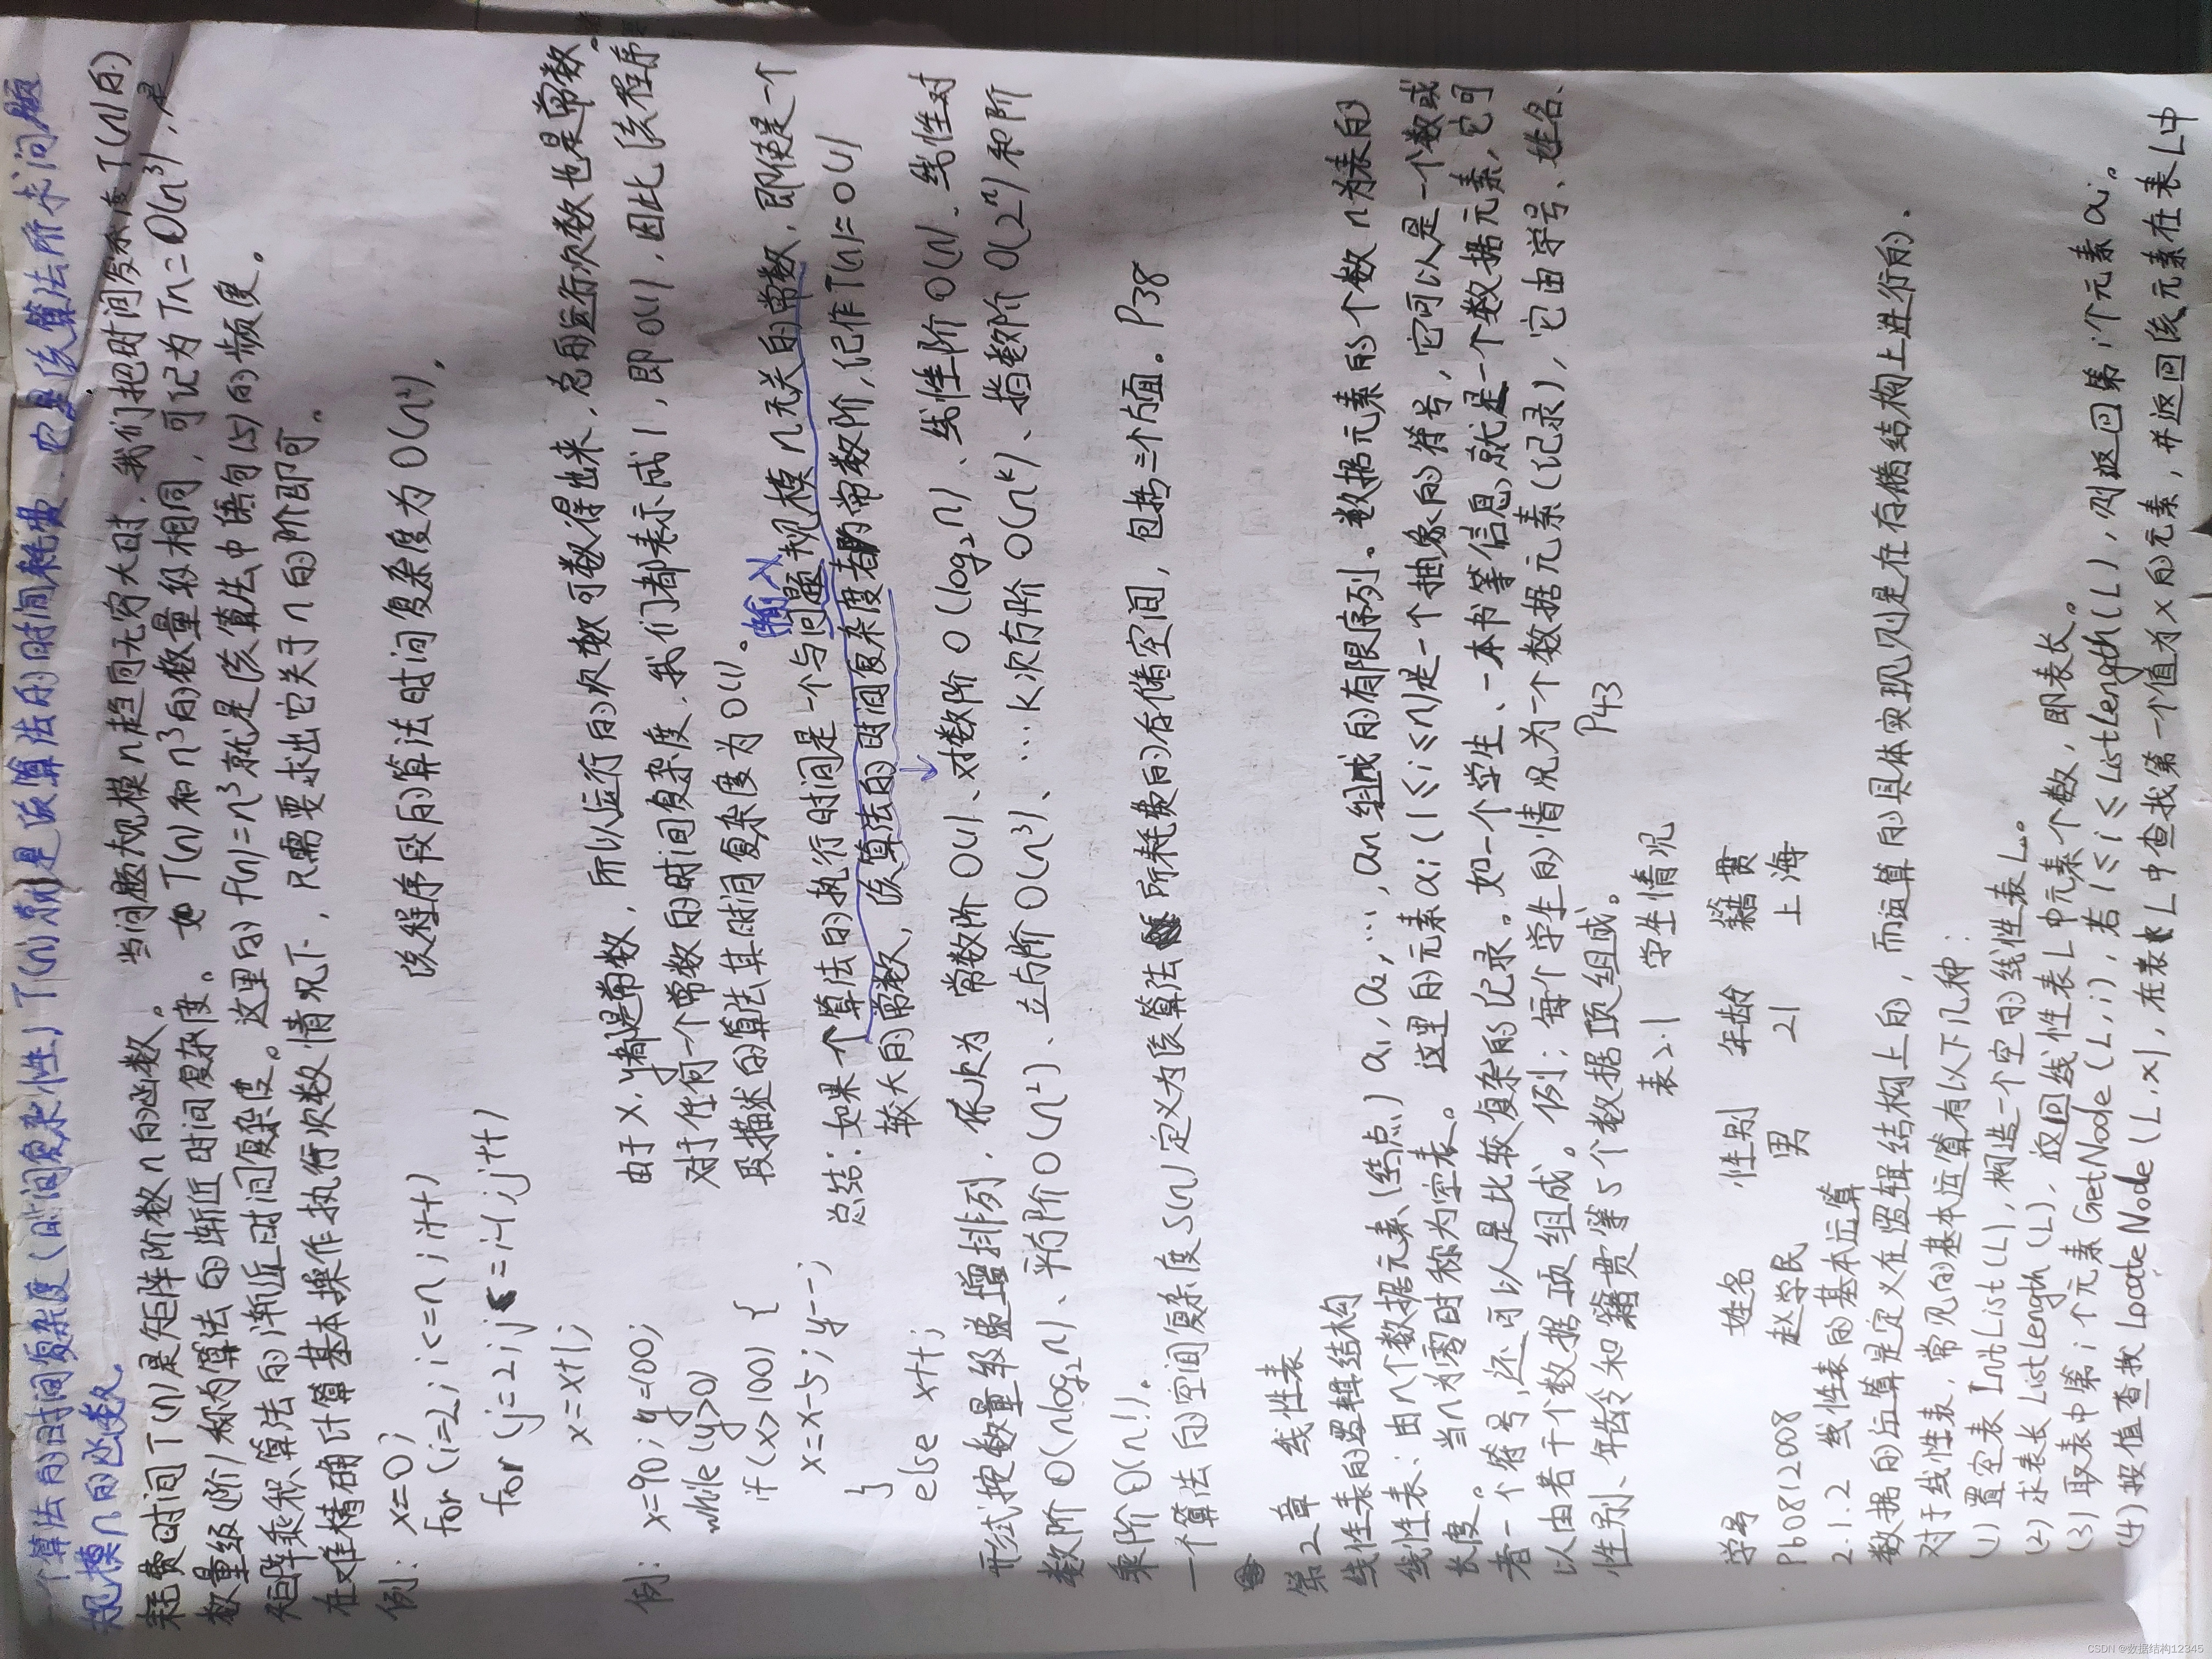 一个算法的时间复杂度(时间复杂性)T(n)就是该算法的时间耗费,它是该算法所求问题
规模n的函数。
耗费时间T(n)是矩阵阶数n的函数。 当问题规模n趋向无穷大时,我们把时间复杂度T(n)的
数量级(阶)称为算法的渐近时间复杂度。 如T(n)和n³的数量级相同,可记为Tn=O(n³),是
矩阵乘积算法的渐近时间复杂度。这里的f(n)=n³就是该算法中语句(5)的频度。
在难精确计算基本操作执行次数情况下,只需要求出它关于n的阶即可。
例: x=0; 该程序段的算法时间复杂度为O(n²).
for(i=2;i<=n;i++)
for(j=2;j<=i-1;j++)
x=x+1;
例: x=90;y=100; 由于x,y都是常数,所以运行的次数可数得出来,总的运行次数也是常数。
while(y>0) 对于任何一个常数的时间复杂度,我们都表示成1,即O(1),因此该程序
if(x>100){ 段描述的算法其时间复杂度为O(1)。
输入
x=x-5;y--; 总结:如果一个算法的执行时间是一个与问题规模n无关的常数,即使是一个
} 较大的常数,该算法的时间复杂度都为常数阶,记作T(n)=O(1)
else x++;
形式按数量级递增排列,依次为 常数阶O(1)、对数阶O(log₂n)、线性阶O(n)、线性对
数阶O(nlog₂n)、平方阶O(n²)、立方阶O(n³)、…k次方阶O(nᵏ)、指数阶O(2ⁿ)和阶
乘阶O(n!)。
一个算法的空间复杂度S(n)定义为该算法所耗费的存储空间,包括三个方面。P38
第2章 线性表
线性表的逻辑结构
线性表:由n个数据元素(结点)a₁,a₂,…,an组成的有限序列。数据元素的个数n为表的
长度。当n为零时称为空表。 这里的元素ai(1≤i≤n)是一个抽象的符号,它可以是一个数或
者一个符号,还可以是比较复杂的记录。如一个学生、一本书等信息就是一个数据元素,它可
以由若干个数据项组成。例:每个学生的情况为一个数据元素(记录),它由学号、姓名、
性别、年龄和籍贯等5个数据项组成。 P43
表2.1 学生情况
学号 姓名 性别 年龄 籍贯
Pb0812008 赵学民 男 21 上海
2.1.2 线性表的基本运算
数据的运算是定义在逻辑结构上的,而运算的具体实现则是在存储结构上进行的.
对于线性表,常见的基本运算有以下几种:
(1)置空表InitList(L),构造一个空的线性表L。
(2)求表长ListLength(L),返回线性表L中元素个数,即表长。
(3)取表中第i个元素GetNode(L,i),若1≤i≤ListLength(L),则返回第i个元素ai。
(4)按值查找LocateNode(L,x),在表L中查找第一个值为x的元素,并返回该元素在表L中
CSDN @数据结构12345